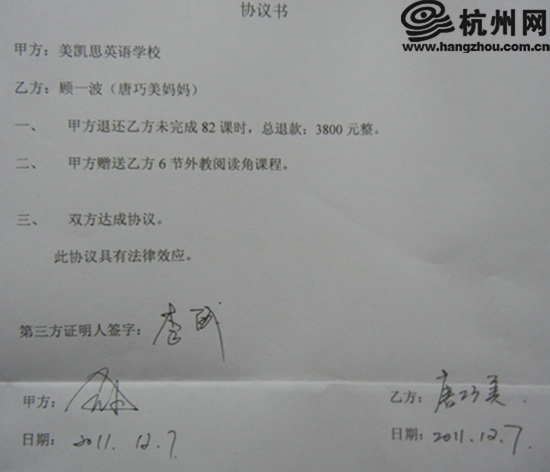 协议书
杭州网
www.hangzhou.com.cn
甲方：美凯思英语学校
乙方：顾一波（唐巧美妈妈）
一、 甲方退还乙方未完成 82 课时，总退款：3800 元整。
二、 甲方赠送乙方 6 节外教阅读角课程。
三、 双方达成协议。
此协议具有法律效应。
第三方证明人签字：
甲方：
乙方：唐巧美
日期：2011.12.7
日期：2011.12.7